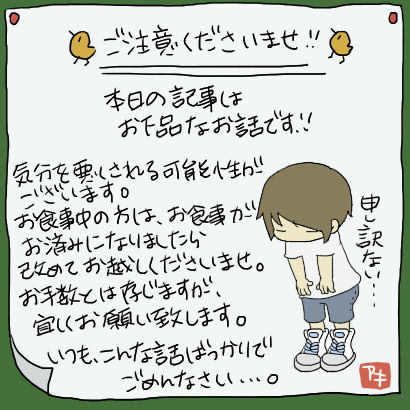 ご注意くださいませ!!
本日の記事は
お下品なお話です!!
気分を悪くされる可能性が
ございます。
お食事中の方は、お食事が
お済みになりましたら
改めてお越しくださいませ。
お手数とは存じますが、
宜しくお願い致します。
いつも、こんな話ばっかりで
ごめんなさい・・・。
申し訳ない・・・
アキ